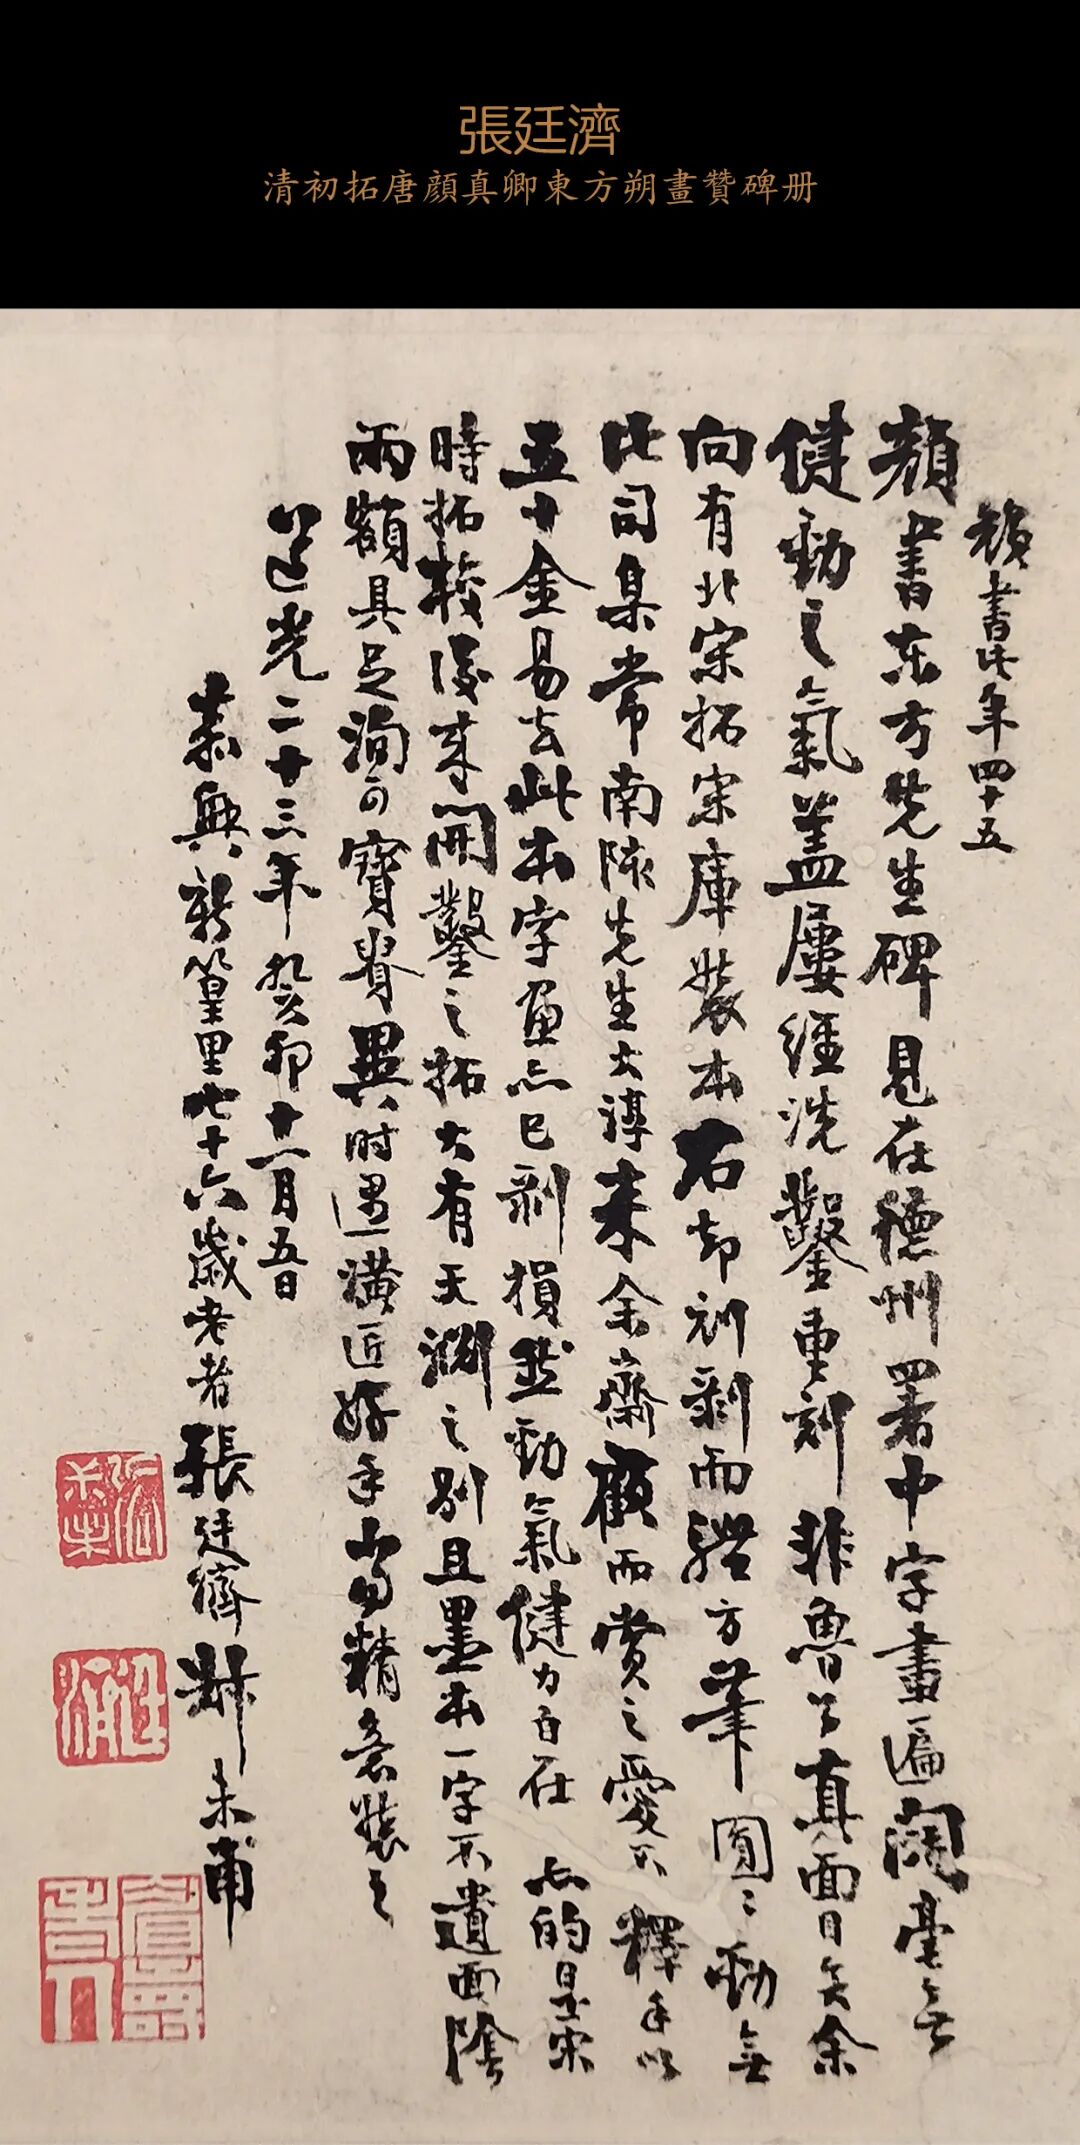 張廷濟
清初拓唐顏真卿東方朔畫贊碑册
顏書此年四十五
顏書東方先生碑見在德州署中字畫遍闊毫無
健勁之氣蓋屢經洗鑿重刻非魯公真面目矣余
向有北宋拓宋庫裝本石却剥而體方筆圓圓勁無
比司臬常南陔先生大淳来余齋顧而賞之愛不釋手以
五十金易去此本字畫亦已剥損然勁氣健力自在亦的是宋
時拓較後来開鑿之拓大有天淵之别且墨本一字不遺面陰
兩額具足洵可寶貴異時遇潢匠好手當精意裝之
道光二十三年癸卯十二月五日
嘉興新篁里七十六歲老者張廷濟叔未甫
張叔未
廷濟